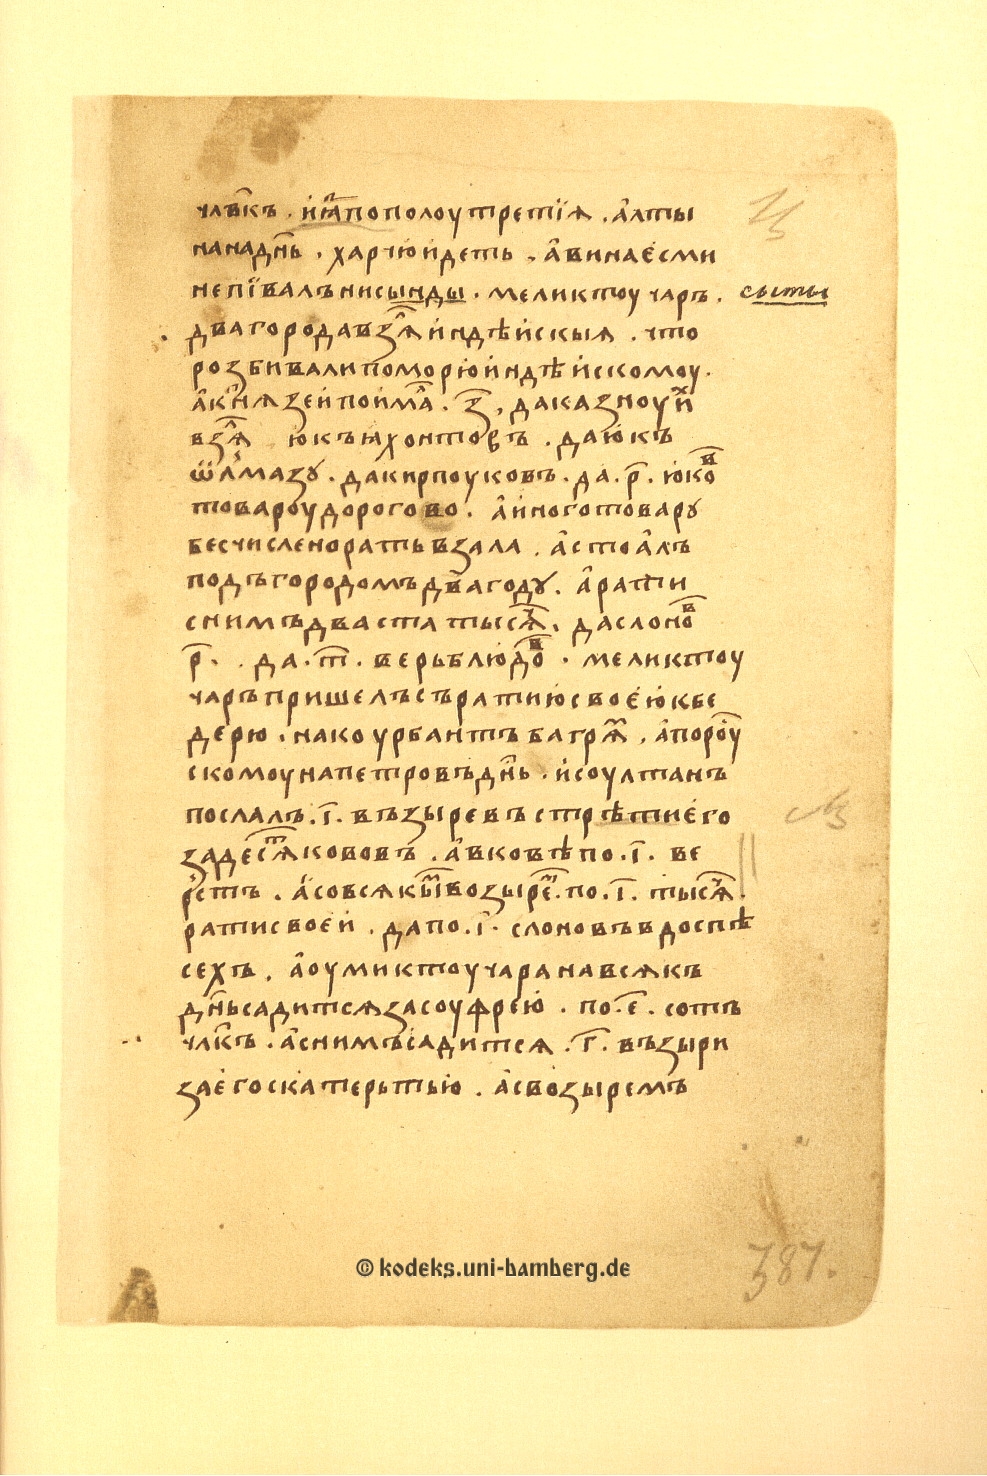 члв҃къ . и҆ꙗ҆ пополоу третїѧ . а҆лты
нанадн҃ь . харчю и҆деть . а҆винае҆сми
непївалънисынды . меликтоу чаръ . сыты
двагородавзѧ҆л и҆ндѣи҆скыѧ . что
розбивалипоморїю҆ и҆ндѣи҆скомоу .
а҆кн҃ѧзеи҆пои҆мал . з҃ . даказноуи҆х
взѧл юкъꙗхонтовъ . даю҆къ
ѿлмазꙋ . дакирпоуковъ . да . р҃ . ю҆ковъ
товароудорогово . а҆и҆ноготоварꙋ
бесчисленоратьвзала . а҆стоа҆лъ
подъгородомъдвагодꙋ . а҆рати
снимъдвастатысѧч . даслонов
р҃ . . да . т҃ . верьблюдов . меликтоу
чаръпришелъсъратию҆своею҆кбе
дерю . накоурбантъбаграм . а҆пороус
скомоунапетровъдн҃ь . и҆соултанъ
послалъ . і҃ . възыревъстрѣтие҆го
задесѧткововъ . а҆вковѣпо . і҃ . ве
рстъ . а҆совсѧкымвозырем . по . і҃ . тысѧч .
ратисвоеи҆ . дапо . і҃ . слоновъвдоспѣ
сехъ . а҆оумиктоучаранавсѧкъ
дн҃ьсадитсѧзасоуфрею҆ . по . е҃ . сотъ
члк҃ъ . а҆снимъсадитсѧ . г҃ . възыри
зае҆госкатерьтью҆ . а҆свозыремъ
387.
© kodeks.uni-bamberg.de